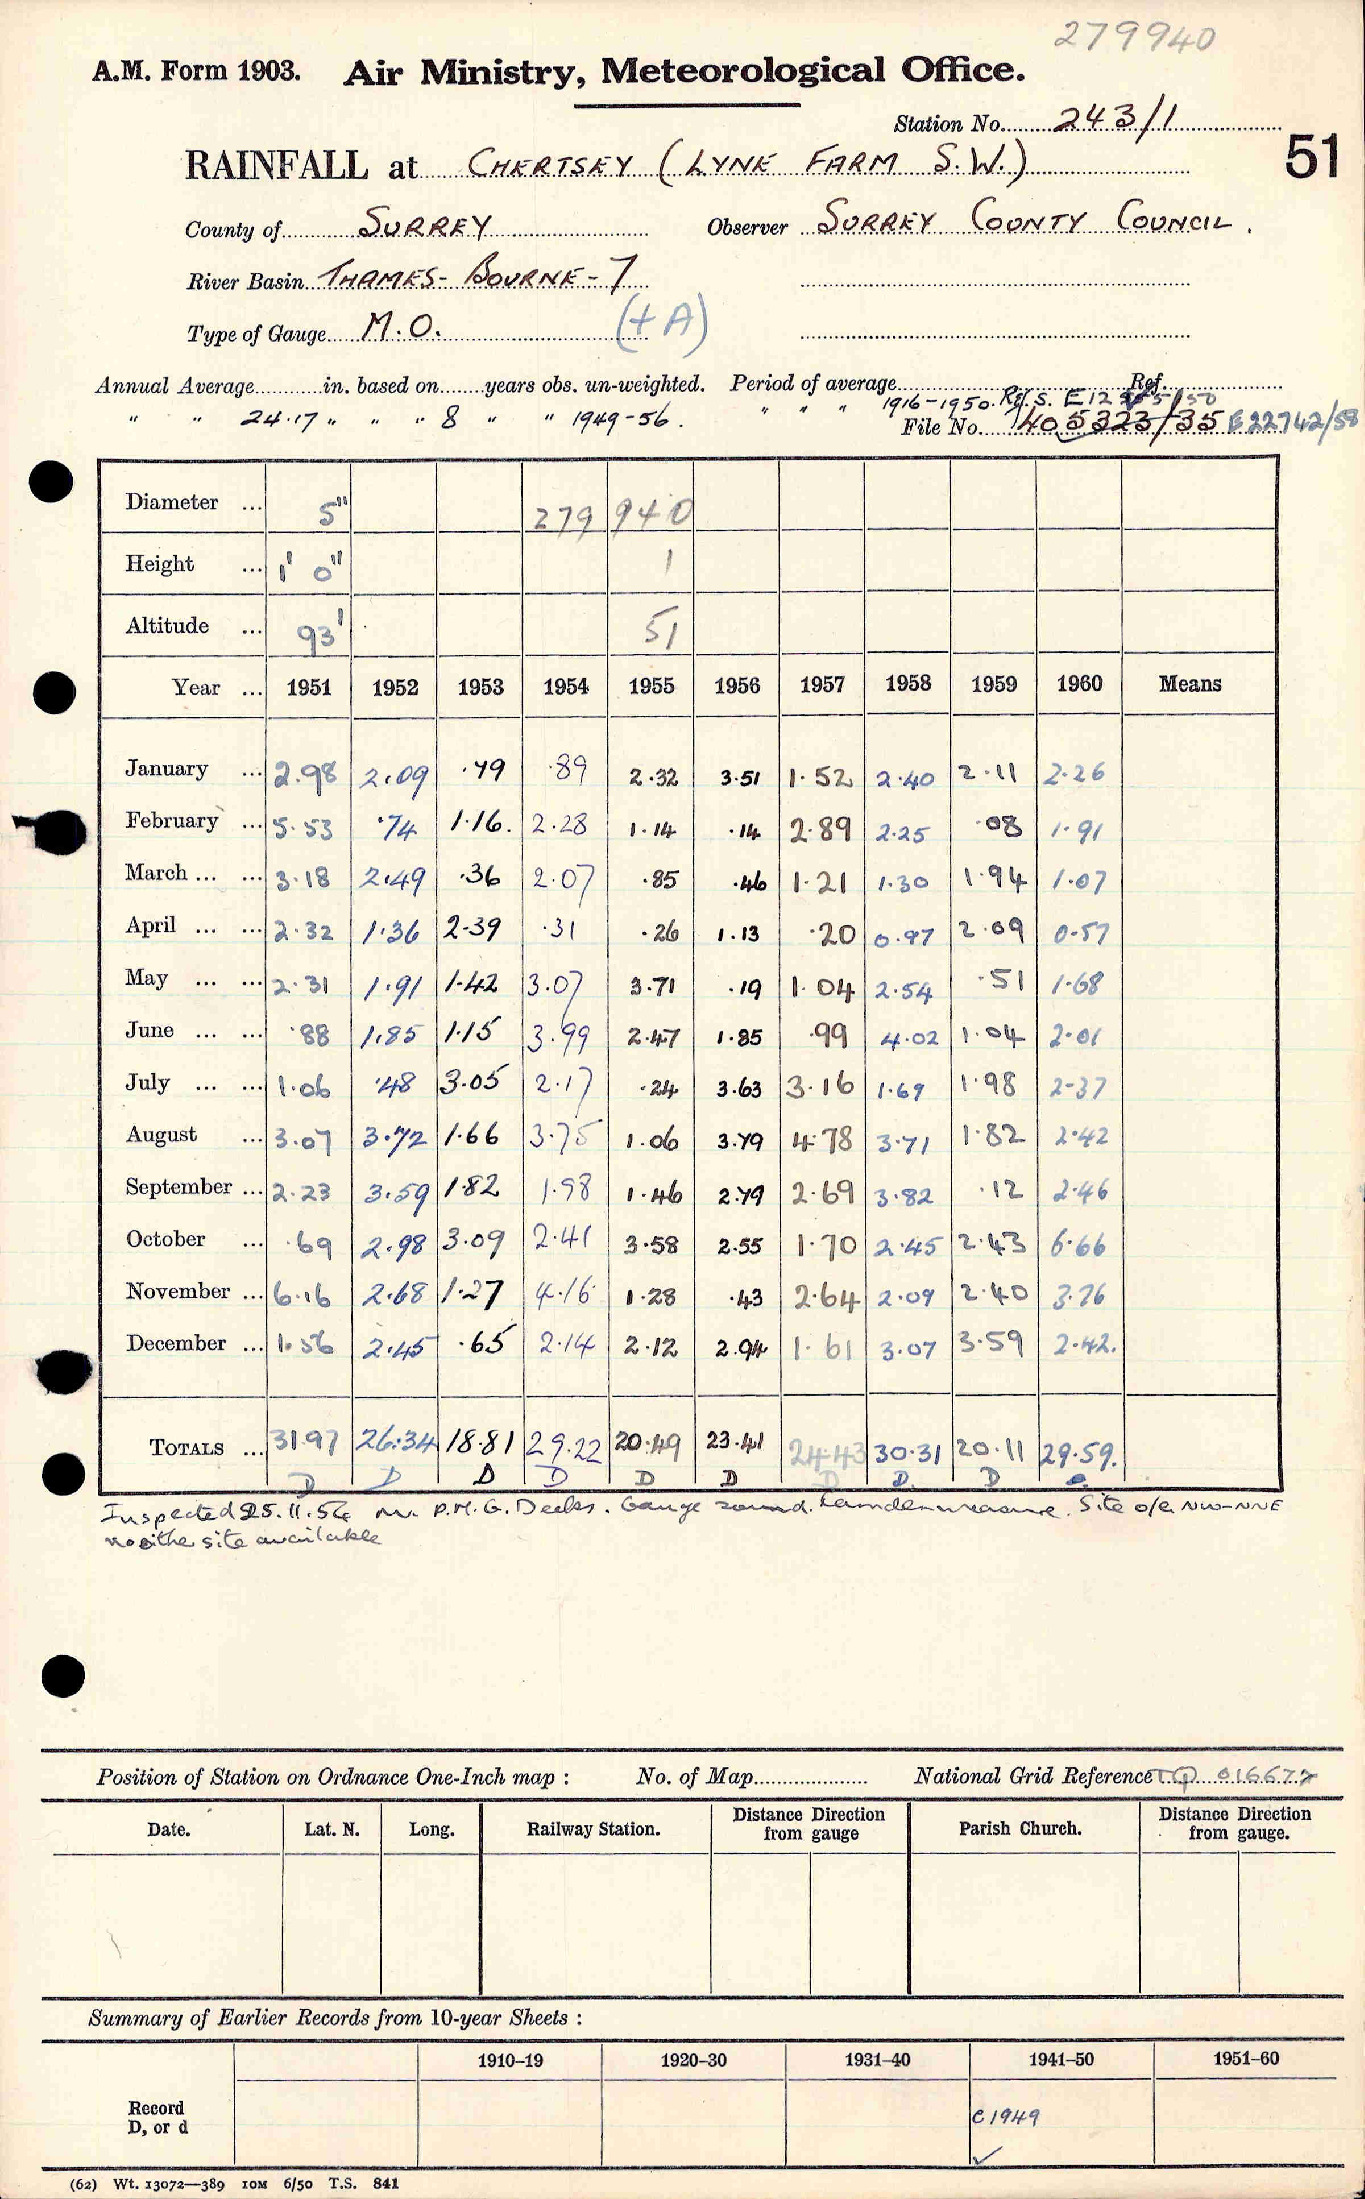 279940
A.M. Form 1903. Air Ministry, Meteorological Office.
Station No. 243/1
RAINFALL at CHERTSEY (LYNE FARM S.W.) 51
County of SURREY Observer SURREY COUNTY COUNCIL.
River Basin THAMES - BOURNE - 7
Type of Gauge M.O. (+A)
Annual Average in. based on years obs. un-weighted. Period of average Ref.
" " 24.17 " " " 8 " " 1949-56. " " " 1916-1950. File No. 405323/35 E22742/58
Diameter ... 5" 279 940
Height ... 1' 0" 1
Altitude ... 93' 51
Year ... 1951 1952 1953 1954 1955 1956 1957 1958 1959 1960 Means
January ... 2.98 2.09 .79 .89 2.32 3.51 1.52 2.40 2.11 2.26
February ... 5.53 .74 1.16. 2.28 1.14 .14 2.89 2.25 .08 1.91
March ... ... 3.18 2.49 .36 2.07 .85 .46 1.21 1.30 1.94 1.07
April ... ... 2.32 1.36 2.39 .31 .26 1.13 .20 0.97 2.09 0.57
May ... ... 2.31 1.91 1.42 3.07 3.71 .19 1.04 2.54 .51 1.68
June ... ... .88 1.85 1.15 3.99 2.47 1.85 .99 4.02 1.04 2.01
July ... ... 1.06 .48 3.05 2.17 .24 3.63 3.16 1.69 1.98 2.37
August ... 3.07 3.72 1.66 3.75 1.06 3.79 4.78 3.71 1.82 2.42
September ... 2.23 3.59 1.82 1.98 1.46 2.79 2.69 3.82 .12 2.46
October ... .69 2.98 3.09 2.41 3.58 2.55 1.70 2.45 2.43 6.66
November ... 6.16 2.68 1.27 4.16 1.28 .43 2.64 2.09 2.40 3.76
December ... 1.56 2.45 .65 2.14 2.12 2.94 1.61 3.07 3.59 2.42.
TOTALS ... 31.97 26.34 18.81 29.22 20.49 23.41 24.43 30.31 20.11 29.59.
D D D D D D D D. D e.
Inspected 25.11.54 Mr. P.M.G. Deeks. Gauge sound. Camden measure. Site o/e NW-NNE
no other site available
Position of Station on Ordnance One-Inch map : No. of Map National Grid Reference TQ 016677
Date. Lat. N. Long. Railway Station. Distance from gauge Direction Parish Church. Distance Direction from gauge.
Summary of Earlier Records from 10-year Sheets :
1910-19 1920-30 1931-40 1941-50 1951-60
Record
D, or d
C1949
(62) Wt. 13072—389 10M 6/50 T.S. 841